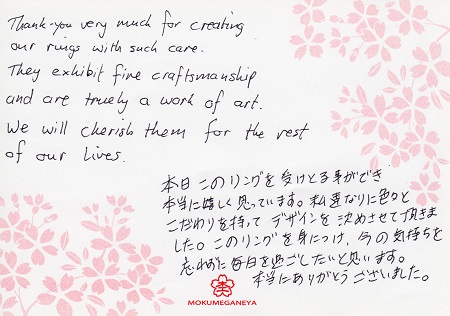 Thank-you very much for creating
our rings with such care.
They exhibit fine craftsmanship
and are truely a work of art.
We will cherish them for the rest
of our lives.
本日このリングを受けとる事ができ
本当に嬉しく思っています。私達なりに色々と
こだわりを持ってデザインを決めさせて頂きま
した。このリングを身につけ、今の気持ちを
忘れずに毎日を過ごしたいと思います。
本当にありがとうございました。
MOKUMEGANEYA